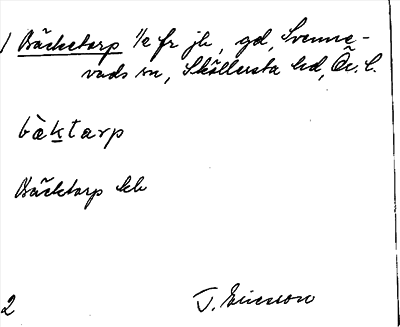 1 Bäcketorp 1/2 fr jb, gd, Svenne-
vads sn, Sköllersta hd, Ör. l.
bäktarp
Bäcktorp kb
2 J. Ericsson